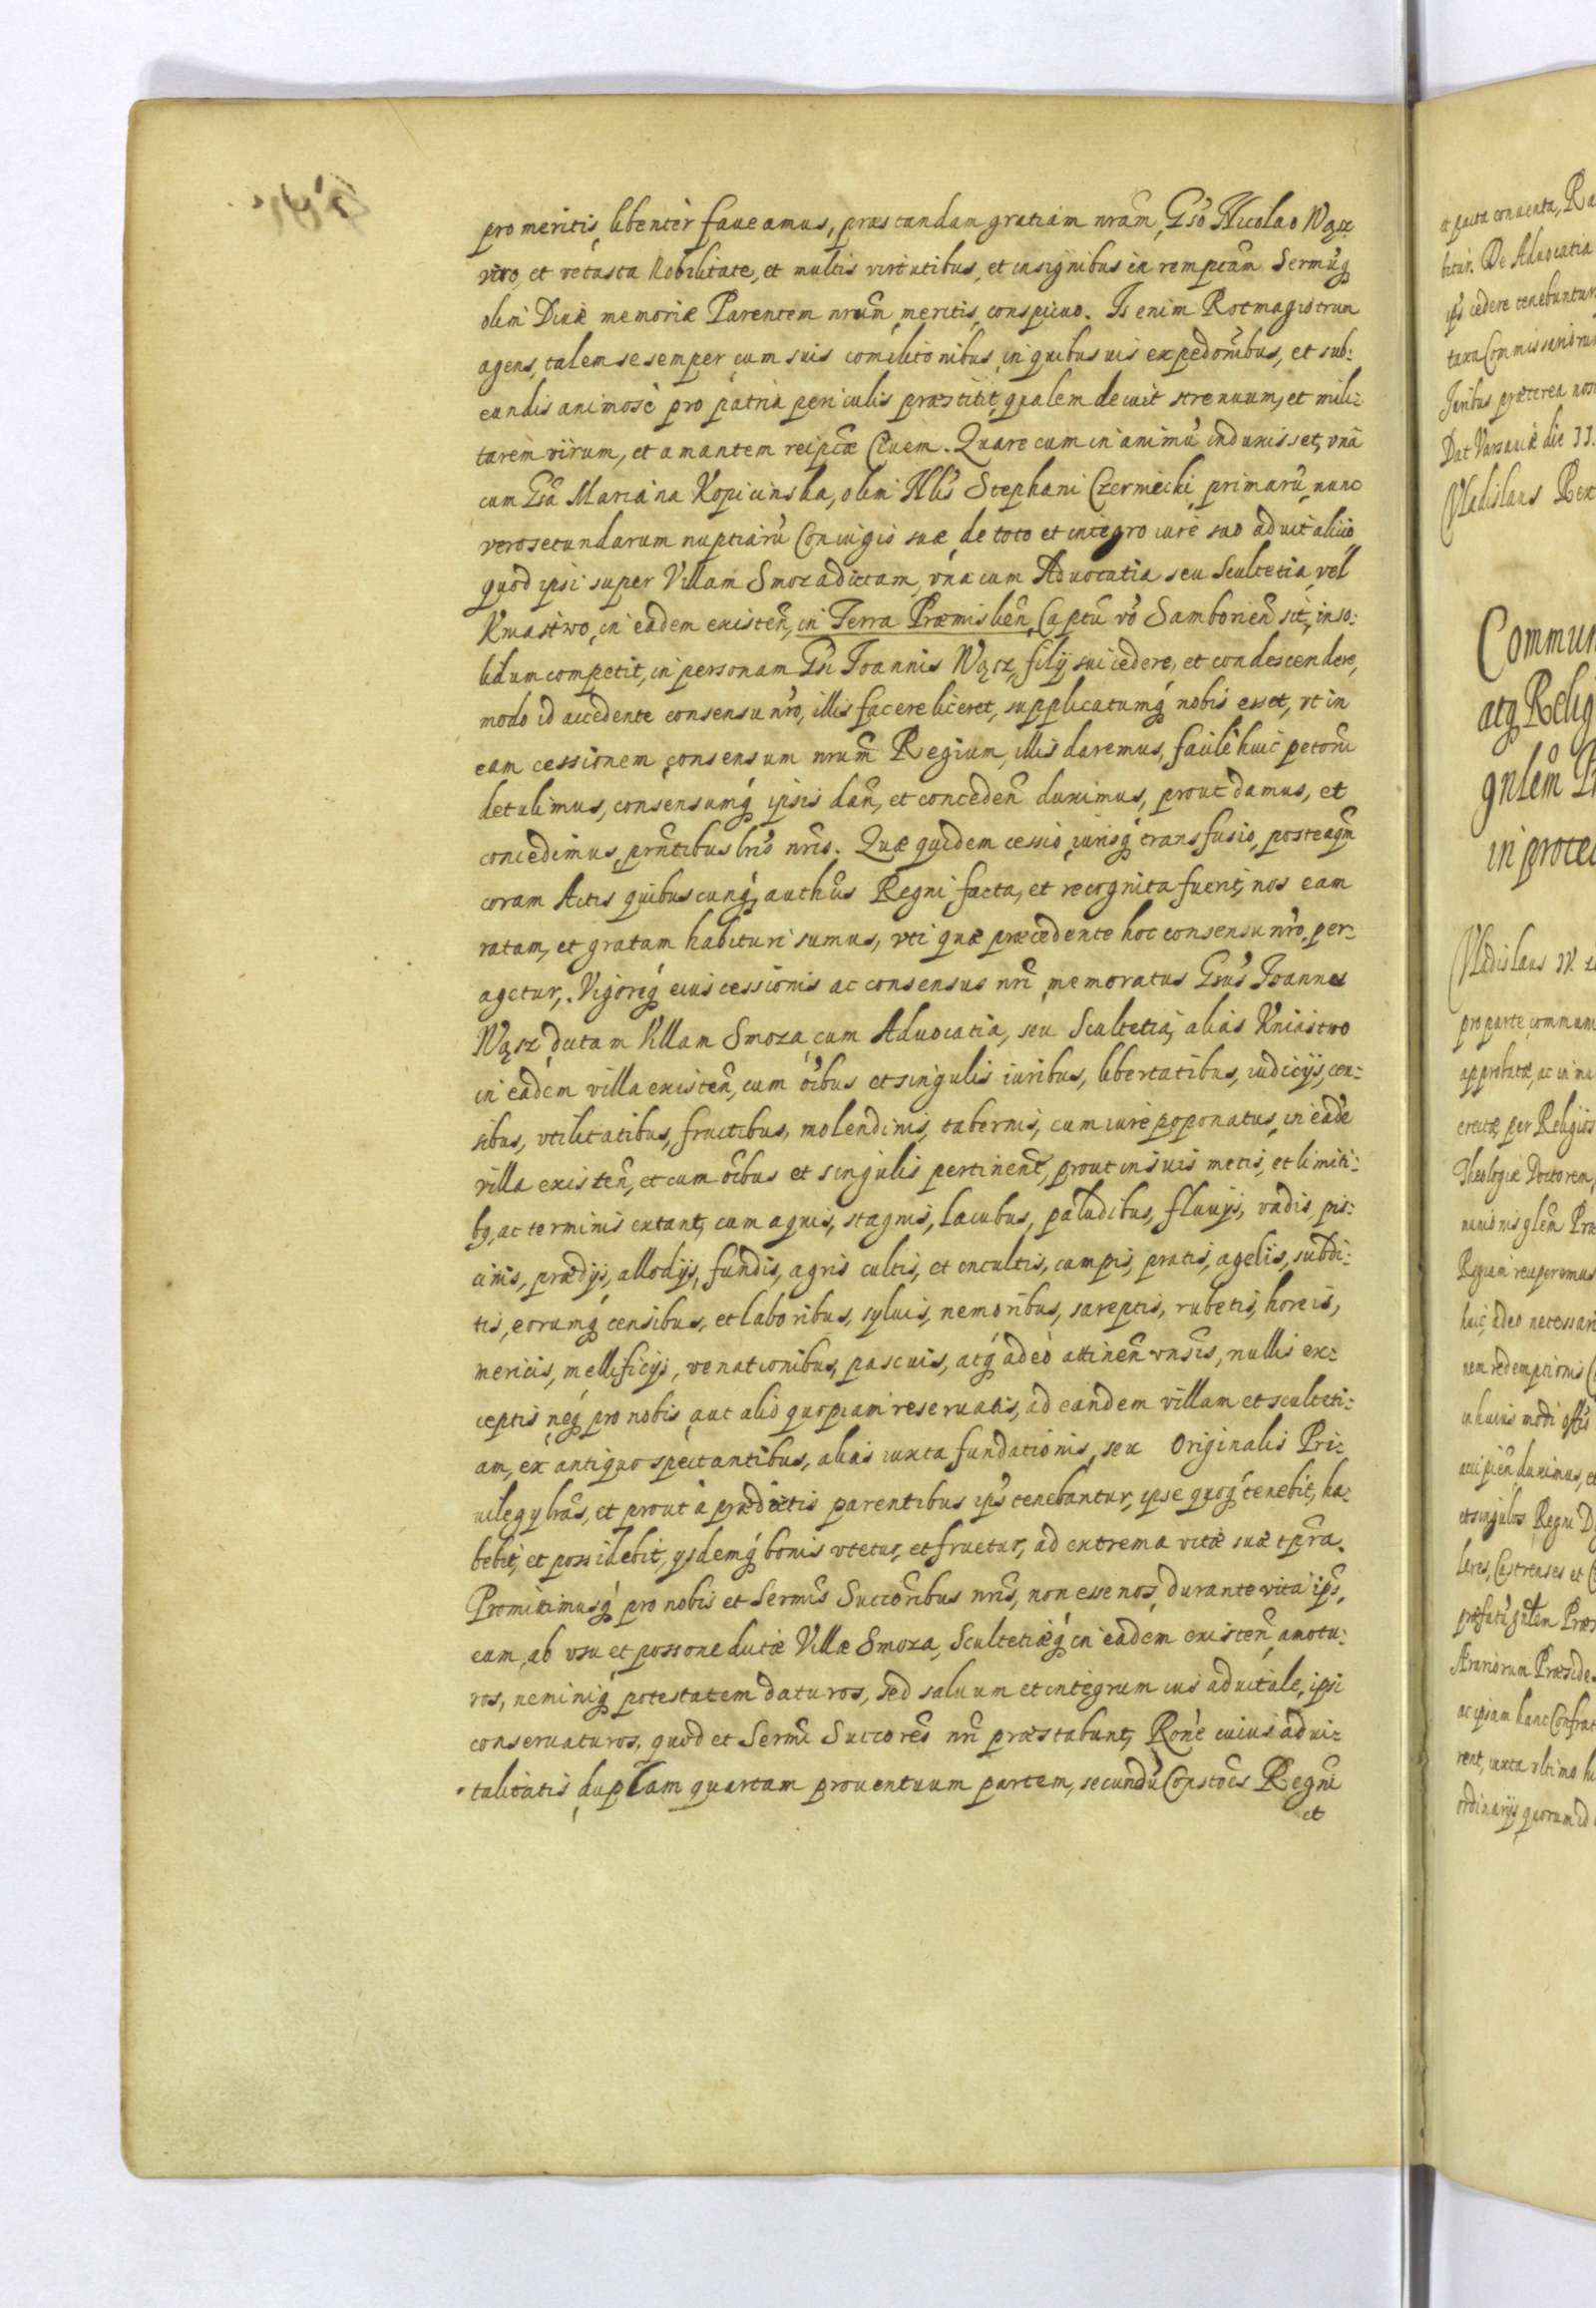 pro meritis, libentèr faueamus, præstandam gratiam nrãm, Gso Nicolao Wąsz
viro, et vetusta Nobilitate, et multis virtutibus, et insignibus in rempcãm Sermũq
olim Diuæ memoriæ Parentem nrum meritis conspicuo. Is enim Rotmagistrum
agens, talem se semper cum suis comilitonibus, in quibusuis expedõnibus, et sub:
eundis animosè pro patria periculis præstitit, qualem decuit strenuum, et mili:
tarem virum, et amantem reipcæ Ciuem. Quare cum in animũ induxisset, vnà
cum Gsa Mariana Kopicinska, olim Illis Stephani Czerniecki primarũ, nunc
vero secundarum nuptiarũ Coniugio suæ, de toto et integro iure suo aduitalitio
quod ipsi super Villam Smoza dictam, vna cum Aduocatia seu Scultetia, vel
Kniastwo, in eadem existeñ, in Terra Præmislieñ, Captũ vo Samborieñ sit, inso:
lidum competit, in personam Gsi Ioannis Wąsz, filij sui cedere, et condescendere,
modo id accedente consensu nro, illis facere liceret, supplicatumq nobis esset, vt in
eam cessionem consensum nrum Regium, illis daremus, facilè huic petõni
detulimus, consensumq ipsis dañ, et concedeñ duximus, prout damus, et
concedimus, prñtibus lris nris. Quæ quidem cessio iurisq transfusio, posteaqm
coram Actis quibuscunq, authcis Regni facta, et recognita fuerit, nos eam
ratam, et gratam habituri sumus, vti quæ præcedente hoc consensu nro per:
agetur. Vigoreq eius cessionis ac consensus nri memoratus Gsus Ioannes
Wąsz dictam Villam Smoza, cum Aduocatia, seu Scultetia, aliàs Kniastwo
in eadem villa existeñ, cum oibus et singulis iuribus, libertatibus, iudicijs, cen:
sibus, vtilitatibus, fructibus, molendinis, tabernis, cum iure poponatus, in eade
villa existeñ, et cum oibus et singulis pertineñt, prout in suis metis, et limiti:
bq, ac terminis extant, cum aquis, stagnis, lacubus, paludibus, fluuijs, vadis, pis:
cinis, prædijs, allodijs, fundis, agris cultis, et incultis, campis, pratis, agelis, subdi:
tis, eorumq censibus, et laboribus, syluis, nemoribus, sareptis, rubetis, horeis,
mericis, mellificijs, venationibus, pascuis, atq adeò attineñ vnsis, nullis ex:
ceptis neq pro nobis aut alio quopiam reseruatis, ad eandem villam et sculteti:
am, ex antiquo spectantibus, alias iuxta fundationis, seu Originalis Pri:
uilegy lras, et prout à prædictis parentibus ips tenebantur, ipse quoq tenebit, ha:
bebit, et possidebit, ysdemq bonis vtetur, et fruetur, ad extrema vitæ suæ tpra.
Promittimusq pro nobis et Sermis Succoribus nris, non esse nos, durante vita ips,
eum, ab vsu et possone dictæ Villæ Smoza, Scultetiæq in eadem existeñ amotu:
ros, neminiq potestatem daturos, sed saluum et integrum ius aduitale, ipsi
conseruaturos, quod et Sermi Succores nri præstabunt, Rone cuius adui:
talitatis duplam quartam prouentuum partem, secundũ Constoes Regni
et
et pacta conuenta, Ra
bitur. De Aduocatia
ips cedere tenebuntur
taxa Commissariorum
Iuribus præterea nos
Dat Varsauiæ die 11.
Vladislaus Rex
Commun
atq Relig
gnlem Pr
in protec
Vladislaus IV.
pro parte commun
approbatæ, ac in ma
erectæ per Religios
Theologiæ Doctorem,
Regiam recuperemus
huic, adeo necessari
nem redemptionis C
in huius modi offis
accipien duximus, et
et singulos Regni D
Castrenses et C
præfati gnlem Præs
Præside
ac ipsam hanc Confrat
rent, iuxta vltimo h
ordinarijs, quorum id